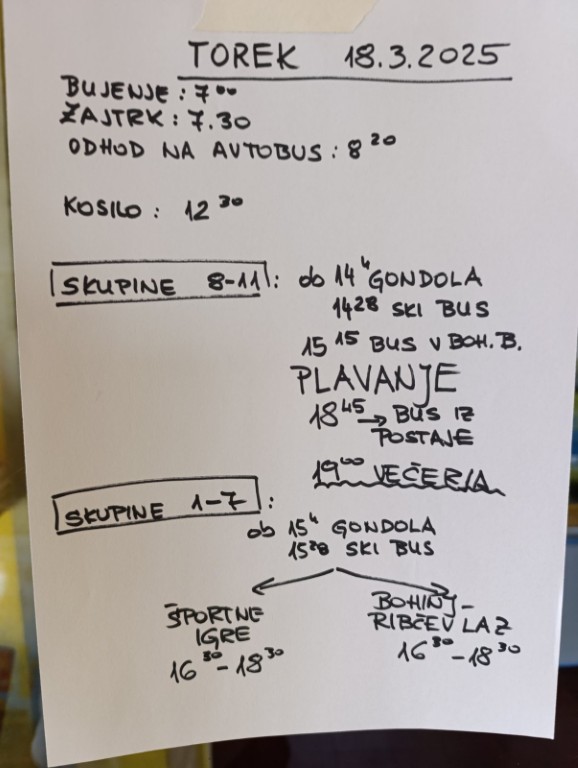 TOREK 18.3.2025
BUJENJE : 7⁰⁰
ZAJTRK : 7.30
ODHOD NA AVTOBUS : 8²⁰
KOSILO : 12³⁰
SKUPINE 8-11 : ob 14⁴ GONDOLA
14²⁸ SKI BUS
15¹⁵ BUS V BOH. B.
PLAVANJE
18⁴⁵ → BUS IZ
POSTAJE
19⁰⁰ VEČERJA
SKUPINE 1-7 :
ob 15⁴ GONDOLA
15²⁸ SKI BUS
ŠPORTNE
IGRE
16³⁰ - 18³⁰
BOHINJ -
RIBČEV LAZ
16³⁰ - 18³⁰